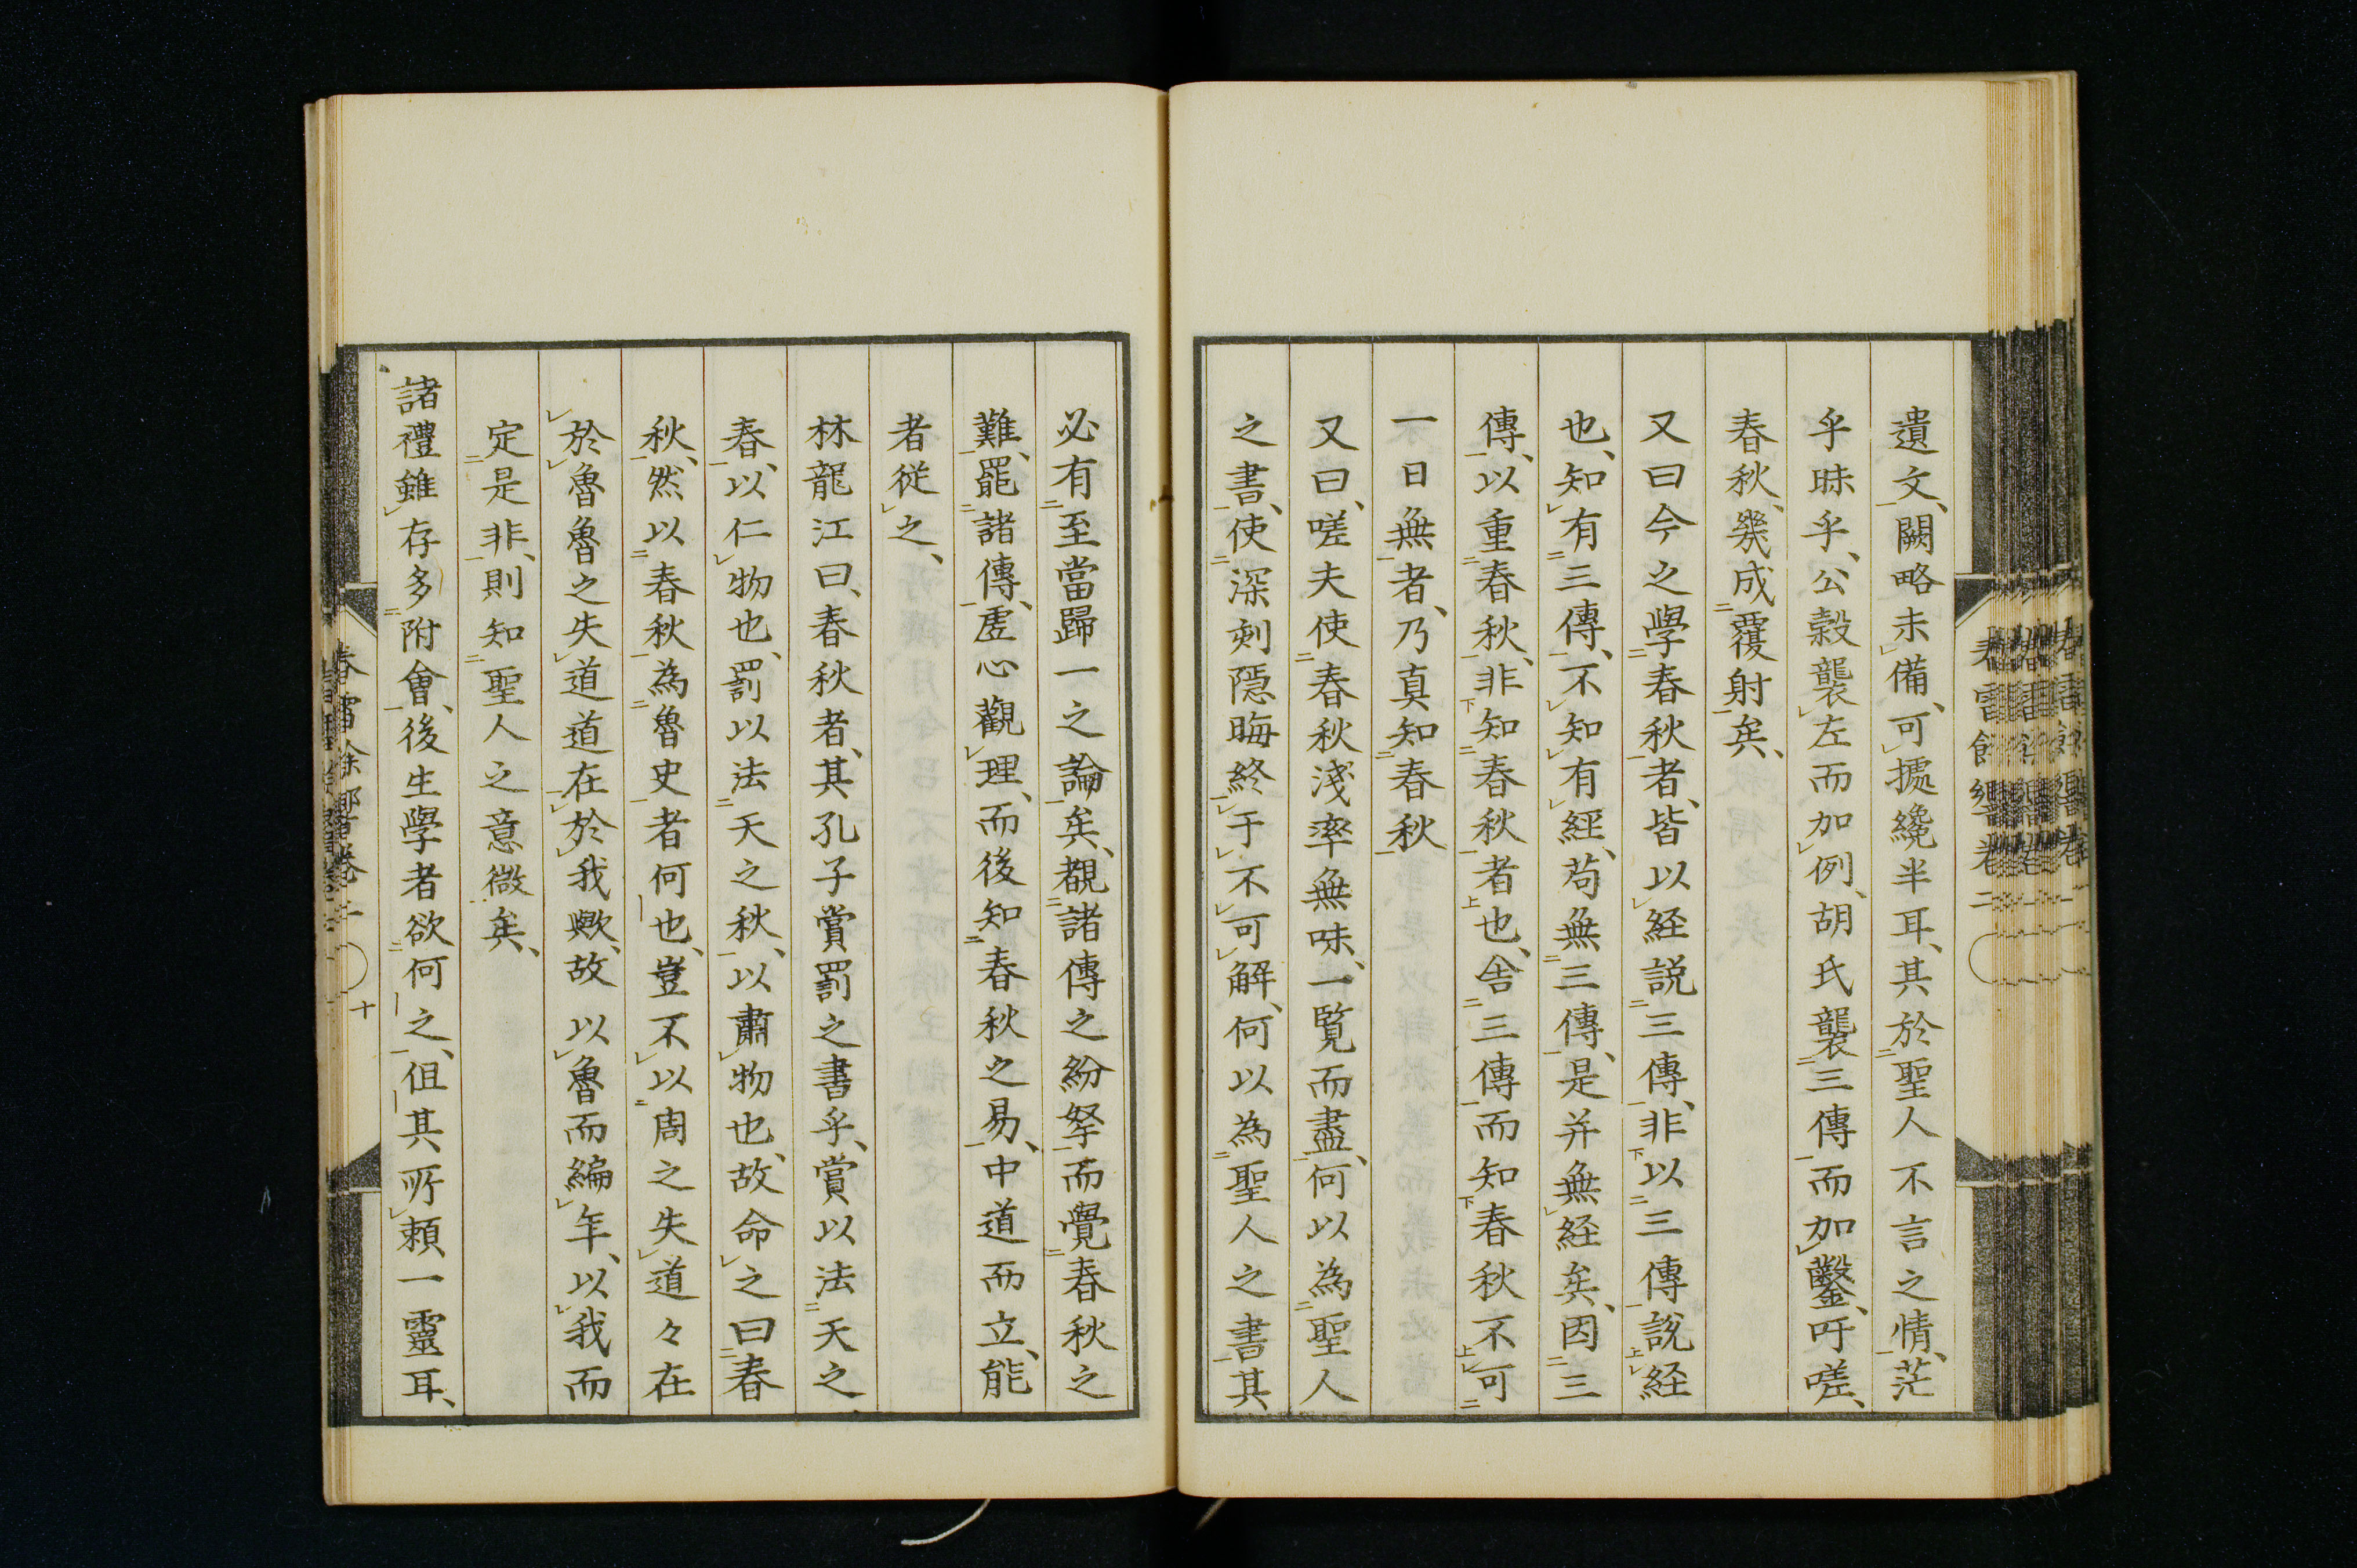 遺文、闕略未備、可據纔半耳、其於聖人不言之情、茫
乎昧乎、公穀襲左而加例、胡氏襲三傳而加鑿、吁嗟、
春秋、幾成覆射矣、
又曰今之學春秋者、皆以経説三傳、非以三傳說経
也、知有三傳、不知有経、苟無三傳、是并無経矣、因三
傳、以重春秋、非知春秋者也、舎三傳而知春秋不可
一日無者、乃真知春秋
又曰、嗟夫使春秋淺率無味、一覧而盡、何以為聖人
之書、使深刻隠晦終于不可解、何以為聖人之書其
必有至當歸一之論矣、覩諸傳之紛拏而覺春秋之
難、罷諸傳、虚心觀理、而後知春秋之易、中道而立、能
者従之、
林龍江曰、春秋者、其孔子賞罰之書乎、賞以法天之
春、以仁物也、罰以法天之秋、以肅物也、故命之曰春
秋、然以春秋為魯史者何也、豈不以周之失道々在
於魯魯之失道道在於我歟、故以魯而編年、以我而
定是非、則知聖人之意微矣、
諸禮雖存多附會、後生學者欲何之、但其所頼一靈耳、
春雷餘響卷二
十